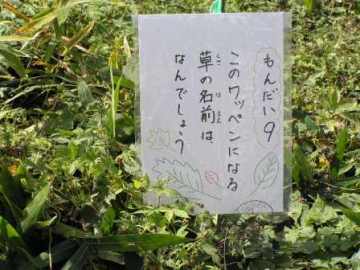 もんだい9
このワッペンになる
草の名前は、
なんでしょう